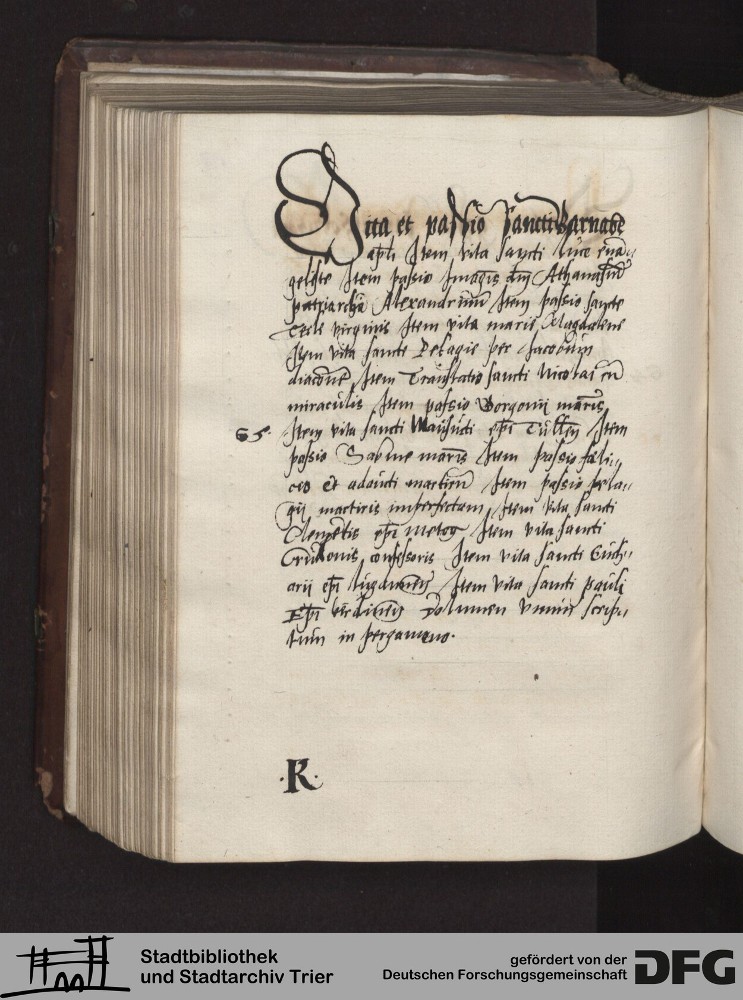 Vita et passio sancti Barnabe
apli Item vita sancti luce eua„
geliste Item passio Imagīs dnj Athanasiū
patriarchā Alexandrinū Item passio sancte
Tecle virginis Item vita marie Magdalene
Item vita sancte Pelagie per Jacobum
diaconū Item Translatio sancti Nicolai cū
miraculis Item passio Gorgonij martīs
65. Item vita sancti Mansueti epī Tullen Item
passio Sabine martīs Item passio foeli„
cis et adaucti martirū Item passio pela„
gij martiris imperfectam Item vita sancti
Clementis epī Meteн Item vita sancti
Trudonis confessoris Item vita sancti Euch„
arij epī lugdunen Item vita sancti pauli
Epī virdunen Volumen vnum scrip„
tum in pergameno.
.K.
Stadtbibliothek
und Stadtarchiv Trier
gefördert von der
Deutschen Forschungsgemeinschaft
DFG